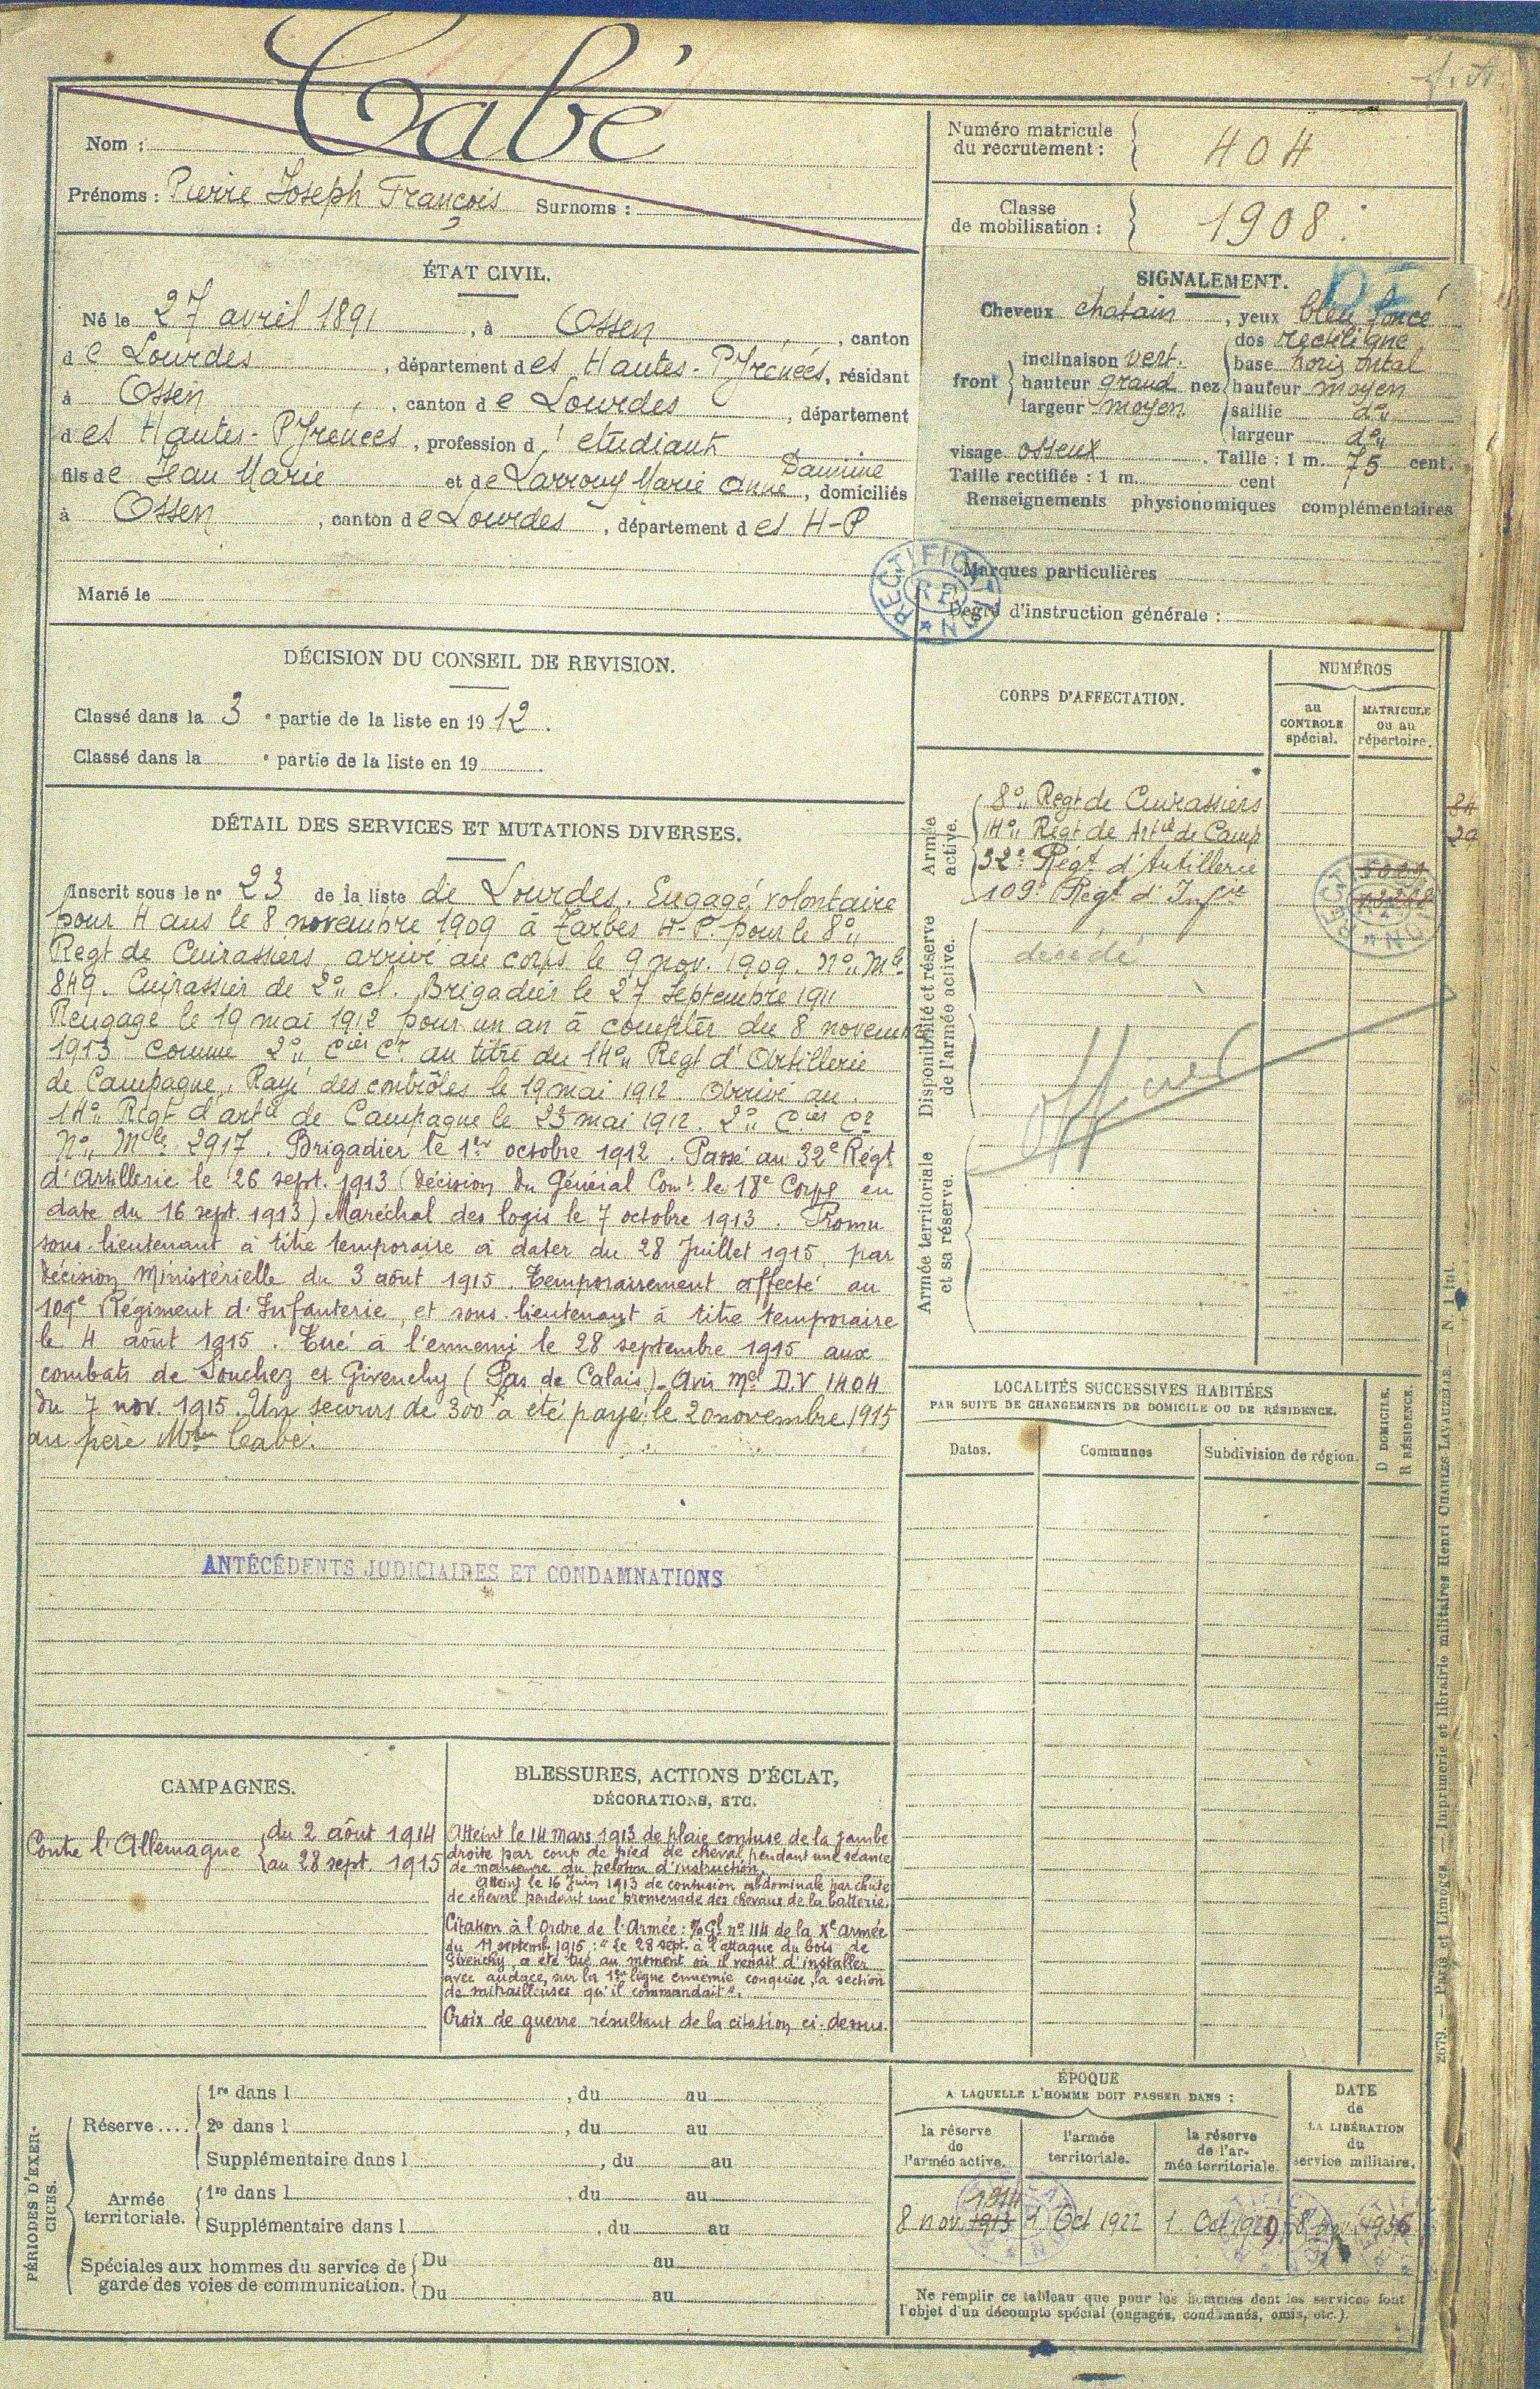 Cabé
Nom :
Prénoms : Pierre Joseph François Surnoms :
Numéro matricule
du recrutement :
404
Classe
de mobilisation :
1908
ÉTAT CIVIL.
Né le 27 avril 1891, à Ossen, canton
de Lourdes, département des Hautes-Pyrénées, résidant
à Ossen, canton de Lourdes, département
des Hautes-Pyrénées, profession d'étudiant
Damiine
fils de Jean Marie et de Larrouy Marie Anne, domiciliés
à Ossen, canton de Lourdes, département des H-P
Marié le
SIGNALEMENT.
Cheveux chatain, yeux bleu foncé
dos rectiligne
inclinaison vert. base horizontal
front hauteur grand nez hauteur moyen
largeur moyen saillie do
largeur do
visage osseux. Taille : 1 m. 75 cent.
Taille rectifiée : 1 m. cent
Renseignements physionomiques complémentaires
Marques particulières
Degré d'instruction générale :
RECTIFICATION
RF
DÉCISION DU CONSEIL DE REVISION.
Classé dans la 3e partie de la liste en 1912.
Classé dans la e partie de la liste en 19
CORPS D'AFFECTATION.
NUMÉROS
au
CONTROLE
spécial.
MATRICULE
ou au
répertoire.
Armée
active.
8o Regt de Cuirassiers
14o Regt de Artie de Camp
32e Régt d'Artillerie
109e Regt d'Infie
84
29
Disponibilité et réserve
de l'armée active.
décédé
Officier
Armée territoriale
et sa réserve.
DÉTAIL DES SERVICES ET MUTATIONS DIVERSES.
Inscrit sous le no 23 de la liste de Lourdes. Engagé volontaire
pour 4 ans le 8 novembre 1909 à Tarbes H-P. pour le 8o
Regt de Cuirassiers, arrivé au corps le 9 nov. 1909. No Mle
849. Cuirassier de 2o cl. Brigadier le 27 Septembre 1911
Rengagé le 19 mai 1912 pour un an à compter du 8 novembre
1913 comme 2o Cier Cr au titre du 14o Regt d'Artillerie
de Campagne. Rayé des contrôles le 19 mai 1912. Arrivé au
14o Regt d'artie de Campagne le 23 mai 1912. 2o Cier Cr
No Mle 2917. Brigadier le 1er octobre 1912. Passé au 32e Régt
d'Artillerie le 26 sept. 1913 (Décision du Général Comt le 18e Corps en
date du 16 sept. 1913) Maréchal des logis le 7 octobre 1913. Promu
sous-lieutenant à titre temporaire à dater du 28 Juillet 1915, par
Décision Ministérielle du 3 août 1915. Temporairement affecté au
109e Régiment d'Infanterie, et sous-lieutenant à titre temporaire
le 4 août 1915. Tué à l'ennemi le 28 septembre 1915 aux
combats de Souchez et Givenchy (Pas de Calais). Avis Mel D.V 1404
du 7 nov. 1915. Un secours de 300f a été payé le 20 novembre 1915
au père Mr Cabé.
ANTÉCÉDENTS JUDICIAIRES ET CONDAMNATIONS
LOCALITÉS SUCCESSIVES HABITÉES
PAR SUITE DE CHANGEMENTS DE DOMICILE OU DE RÉSIDENCE.
Dates.
Communes
Subdivision de région.
D DOMICILE.
R RÉSIDENCE.
CAMPAGNES.
Contre l'Allemagne
du 2 août 1914
au 28 sept. 1915
BLESSURES, ACTIONS D'ÉCLAT,
DÉCORATIONS, ETC.
Atteint le 14 Mars 1913 de plaie contuse de la jambe
droite par coup de pied de cheval pendant une séance
de manœuvre du peloton d'instruction.
Atteint le 16 Juin 1913 de contusion abdominale par chute
de cheval pendant une promenade des chevaux de la batterie.
Citation à l'Ordre de l'Armée: O/Gl no 114 de la Xe armée
du 11 septemb 1915 : "Le 28 sept. à l'attaque du bois de
Givenchy, a été tué au moment où il venait d'installer
avec audace, sur la 1ère ligne ennemie conquise, la section
de mitrailleuses qu'il commandait".
Croix de guerre résultant de la citation ci-dessus.
PÉRIODES D'EXER-
CICES.
Réserve....
1re dans l , du au
2e dans l , du au
Supplémentaire dans l , du au
Armée
territoriale.
1re dans l , du au
Supplémentaire dans l , du au
Spéciales aux hommes du service de
garde des voies de communication.
Du au
Du au
ÉPOQUE
A LAQUELLE L'HOMME DOIT PASSER DANS :
la réserve
de
l'armée active.
l'armée
territoriale.
la réserve
de l'ar-
mée territoriale.
DATE
de
LA LIBÉRATION
du
service militaire.
1914
8 nov. 1913
1 Oct 1922
1 Oct 1929
8 nov. 1936
Ne remplir ce tableau que pour les hommes dont les services font
l'objet d'un décompte spécial (engagés, condamnés, omis, etc.).
2679. — Paris et Limoges. — Imprimerie et librairie militaires Henri CHARLES-LAVAUZELLE. — N. 1 int.